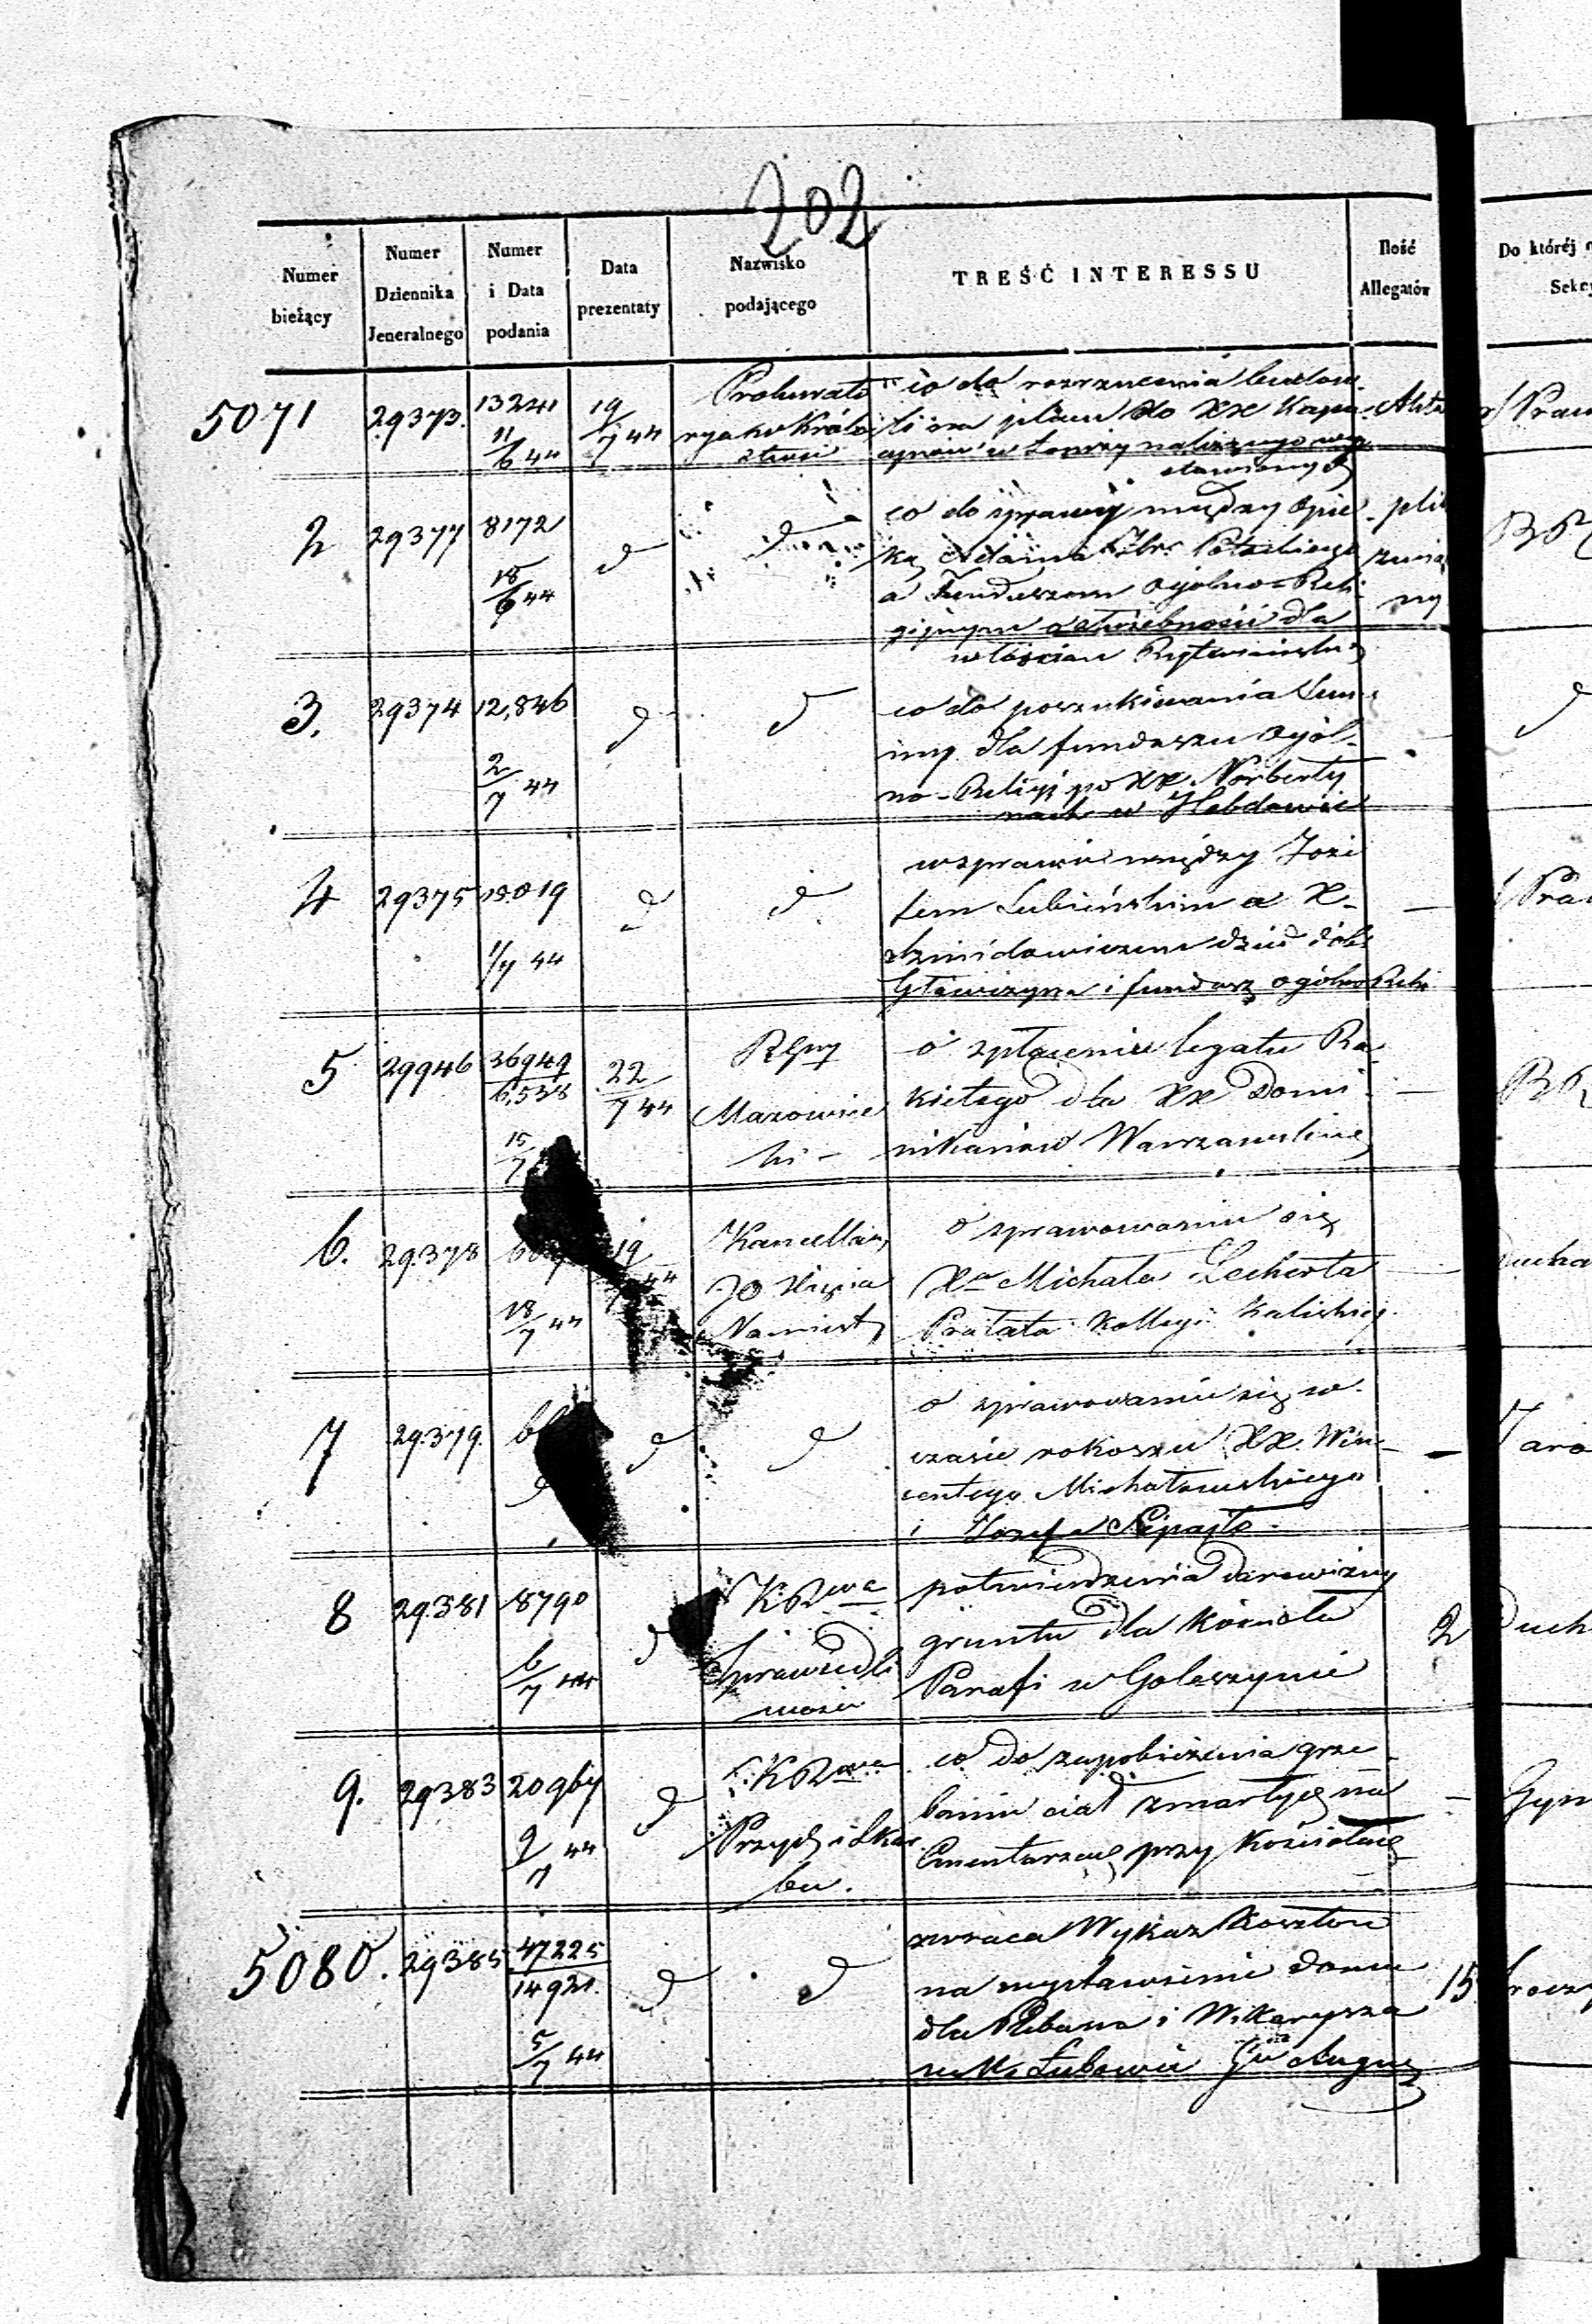 202
Numer bieżący | Numer Dziennika Jeneralnego | Numer i Data podania | Data prezentaty | Nazwisko podającego | TREŚĆ INTERESSU | Ilość Allegatów | Do któréj
Sekcy
5071 | 29373. | 13241 11/6 44 | 19/7 44 | Prokurato
rya Królestwa
co do rozrzucenia budow
li na placu do XX Kapu
cynów w Łomży należącego wy
stawionych
Akta
2 | 29377 | 8172 18/6 44 | d | d
co do sprawy między opie
ką Adama Hbr: Potockiego
a Funduszem ogólno-Reli
gijnym o służebności dla
włościan Rytwiańskich
3. | 29374 | 12,846 2/7 44 | d | d
co do poszukiwania Sum
my dla funduszu ogól-
no-Religij po XX. Norberty
nach w Hebdowie
d
4 | 29375 | 13.019 1/7 44 | d | d
w sprawie między Józe
fem Lubieńskim a X.
dóbr
i fundusz ogólno Reli
5 | 29946 | 36949/6,538 15/7 | 22/7 44
Mazowiec
ki -
o spłacenie legatu Ra
kietego dla XX Domi
nikanów Warszawskich
6. | 29.378 | 18/7 44 | 19 44
Kancellarya
JO Xięcia
Namiest
o sprawowaniu się
Xa Michała Lecherta
Prałata Kolleg: Kaliskiej
7 | 29.379. | d | d | d
o sprawowaniu się w
czasie rokoszu XX. Win-
centego Michałowskiego
i Józefa
8 | 29.381 | 8790 6/7 44 | d
K R
Sprawiedli
wości
potwierdzenia darowizny
gruntu dla kościoła
Parafi w Goleszynie
2
9. | 29383 | 20967 9/7 44 | d
K R
Przych i Skar
bu.
co do zapobieżenia grze
baniu ciał zmarłych na
Cmentarzach przy Kościołach
5080. | 29385 | 47225/14921. 5/7 44 | d | d
zwraca Wykaz kosztów
na wystawienie domu
dla Plebana i Wikaryusza
w M. Łubowie Gu August
15